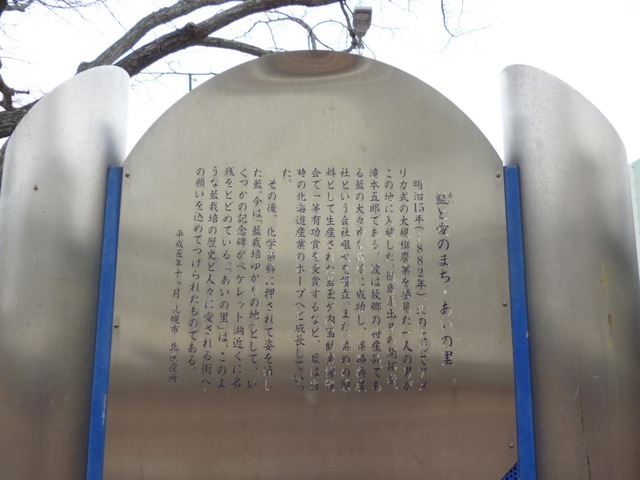 藍と愛のまち・あいの里
明治15年(1882年)、
リカ式の大規模農業を夢見た一人の男が
この地に入植した。徳島県出身の
滝本五郎である。彼は故郷の特産品であ
る藍の大々的な に成功し、
社という会社組織を設立。また、
料として生産された藍玉が内国勧業博覧
会で一等有功賞を受賞するなど、藍は当
時の北海道産業のホープへと成長していっ
た。
その後、化学染料に押されて姿を消し
た藍。今は「藍栽培ゆかりの地」として、い
くつかの記念碑がペケレット湖近くに名
残をとどめている。「あいの里」は、このよ
うな藍栽培の歴史と人々に愛される街へ
の願いを込めてつけられたものである。
平成五年十 月 札幌市 北区役所